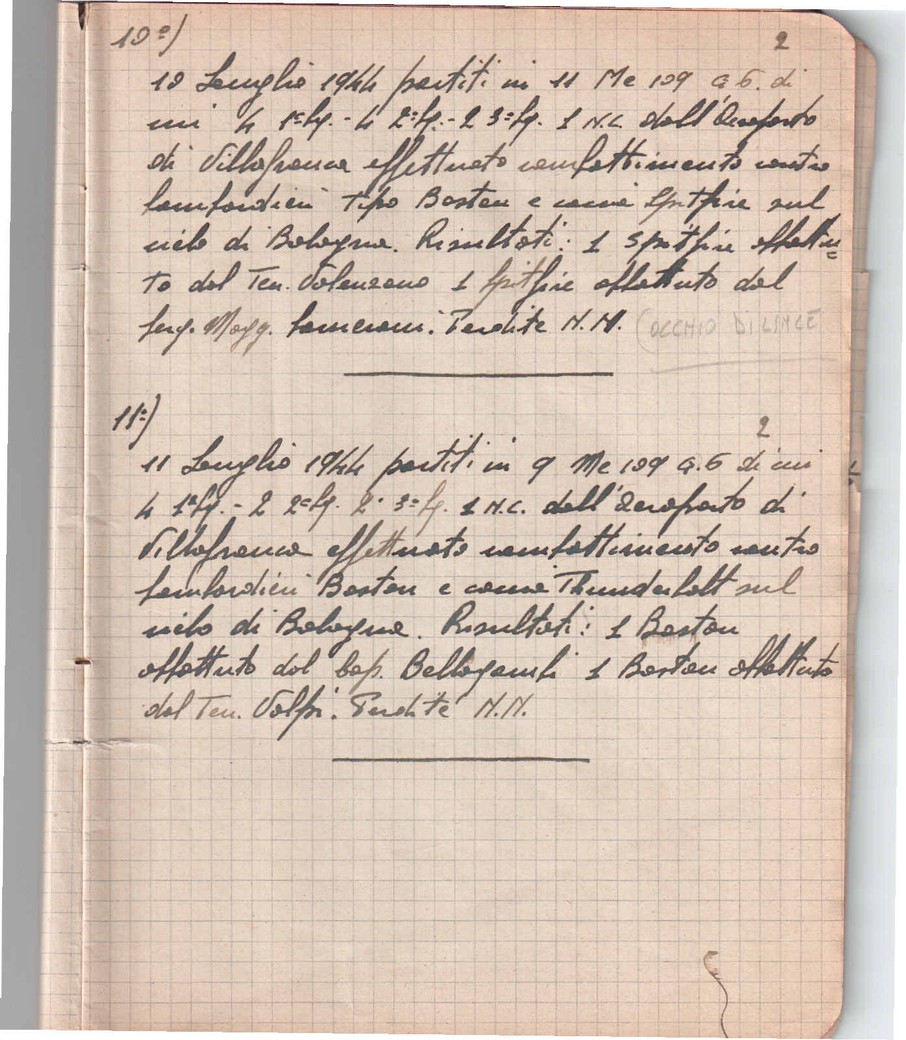 10º) 2
10 Luglio 1944 partiti in 11 Me 109 G.6. di
cui 4 1ª Sq. - 4 2ª Sq. - 2 3ª Sq. 1 N.C. dall'Aeroporto
di Villafranca effettuato combattimento contro
bombardieri tipo Boston e caccia Spitfire sul
cielo di Bologna. Risultati: 1 Spitfire abbattu=
to dal Ten. Valenzano 1 Spitfire abbattuto dal
Serg. Magg. Perdite N.N. (OCCHIO DI LINCE
11º)
2
11 Luglio 1944 partiti in 9 Me 109 G.6 di cui
4 1ª Sq. - 2 2ª Sq. 2 - 3ª Sq. 1 N.C. dall'Aeroporto di
Villafranca effettuato combattimento contro
bombardieri Boston e caccia Thunderbolt sul
cielo di Bologna. Risultati: 1 Boston
abbattuto dal Cap. Bellagambi 1 Boston abbattuto
dal Ten. Volpi. Perdite N.N.